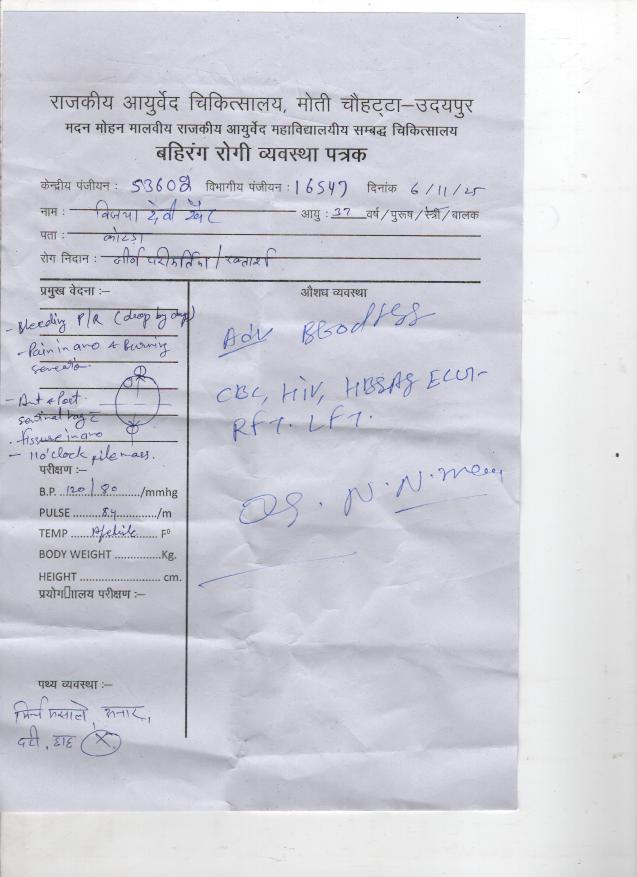 राजकीय आयुर्वेद चिकित्सालय, मोती चौहट्टा–उदयपुर
मदन मोहन मालवीय राजकीय आयुर्वेद महाविद्यालयीय सम्बद्ध चिकित्सालय
बहिरंग रोगी व्यवस्था पत्रक
केन्द्रीय पंजीयन : 53602 विभागीय पंजीयन : 16547 दिनांक 6/11/25
नाम : विजया देवी आयु : 37 वर्ष/पुरूष/स्त्री/बालक
पता : कोटड़ा
रोग निदान : जीर्ण परिकर्तिका / रक्तार्श
प्रमुख वेदना :–
- Bleeding P/R (drop by drop)
- Pain in ano & Burning
sensation
- Ant & Post.
sentinel tag c̄
- fissure in ano
- 11 o'clock pile mass.
परीक्षण :–
B.P. 120/80 /mmhg
PULSE 84 /m
TEMP Afebrile F⁰
BODY WEIGHT Kg.
HEIGHT cm.
प्रयोग▯ाालय परीक्षण :–
पथ्य व्यवस्था :–
मिर्च मसाले, अचार,
दही, छाछ X
औशध व्यवस्था
Adv
CBC, HIV, HBSAG
RFT. LFT.